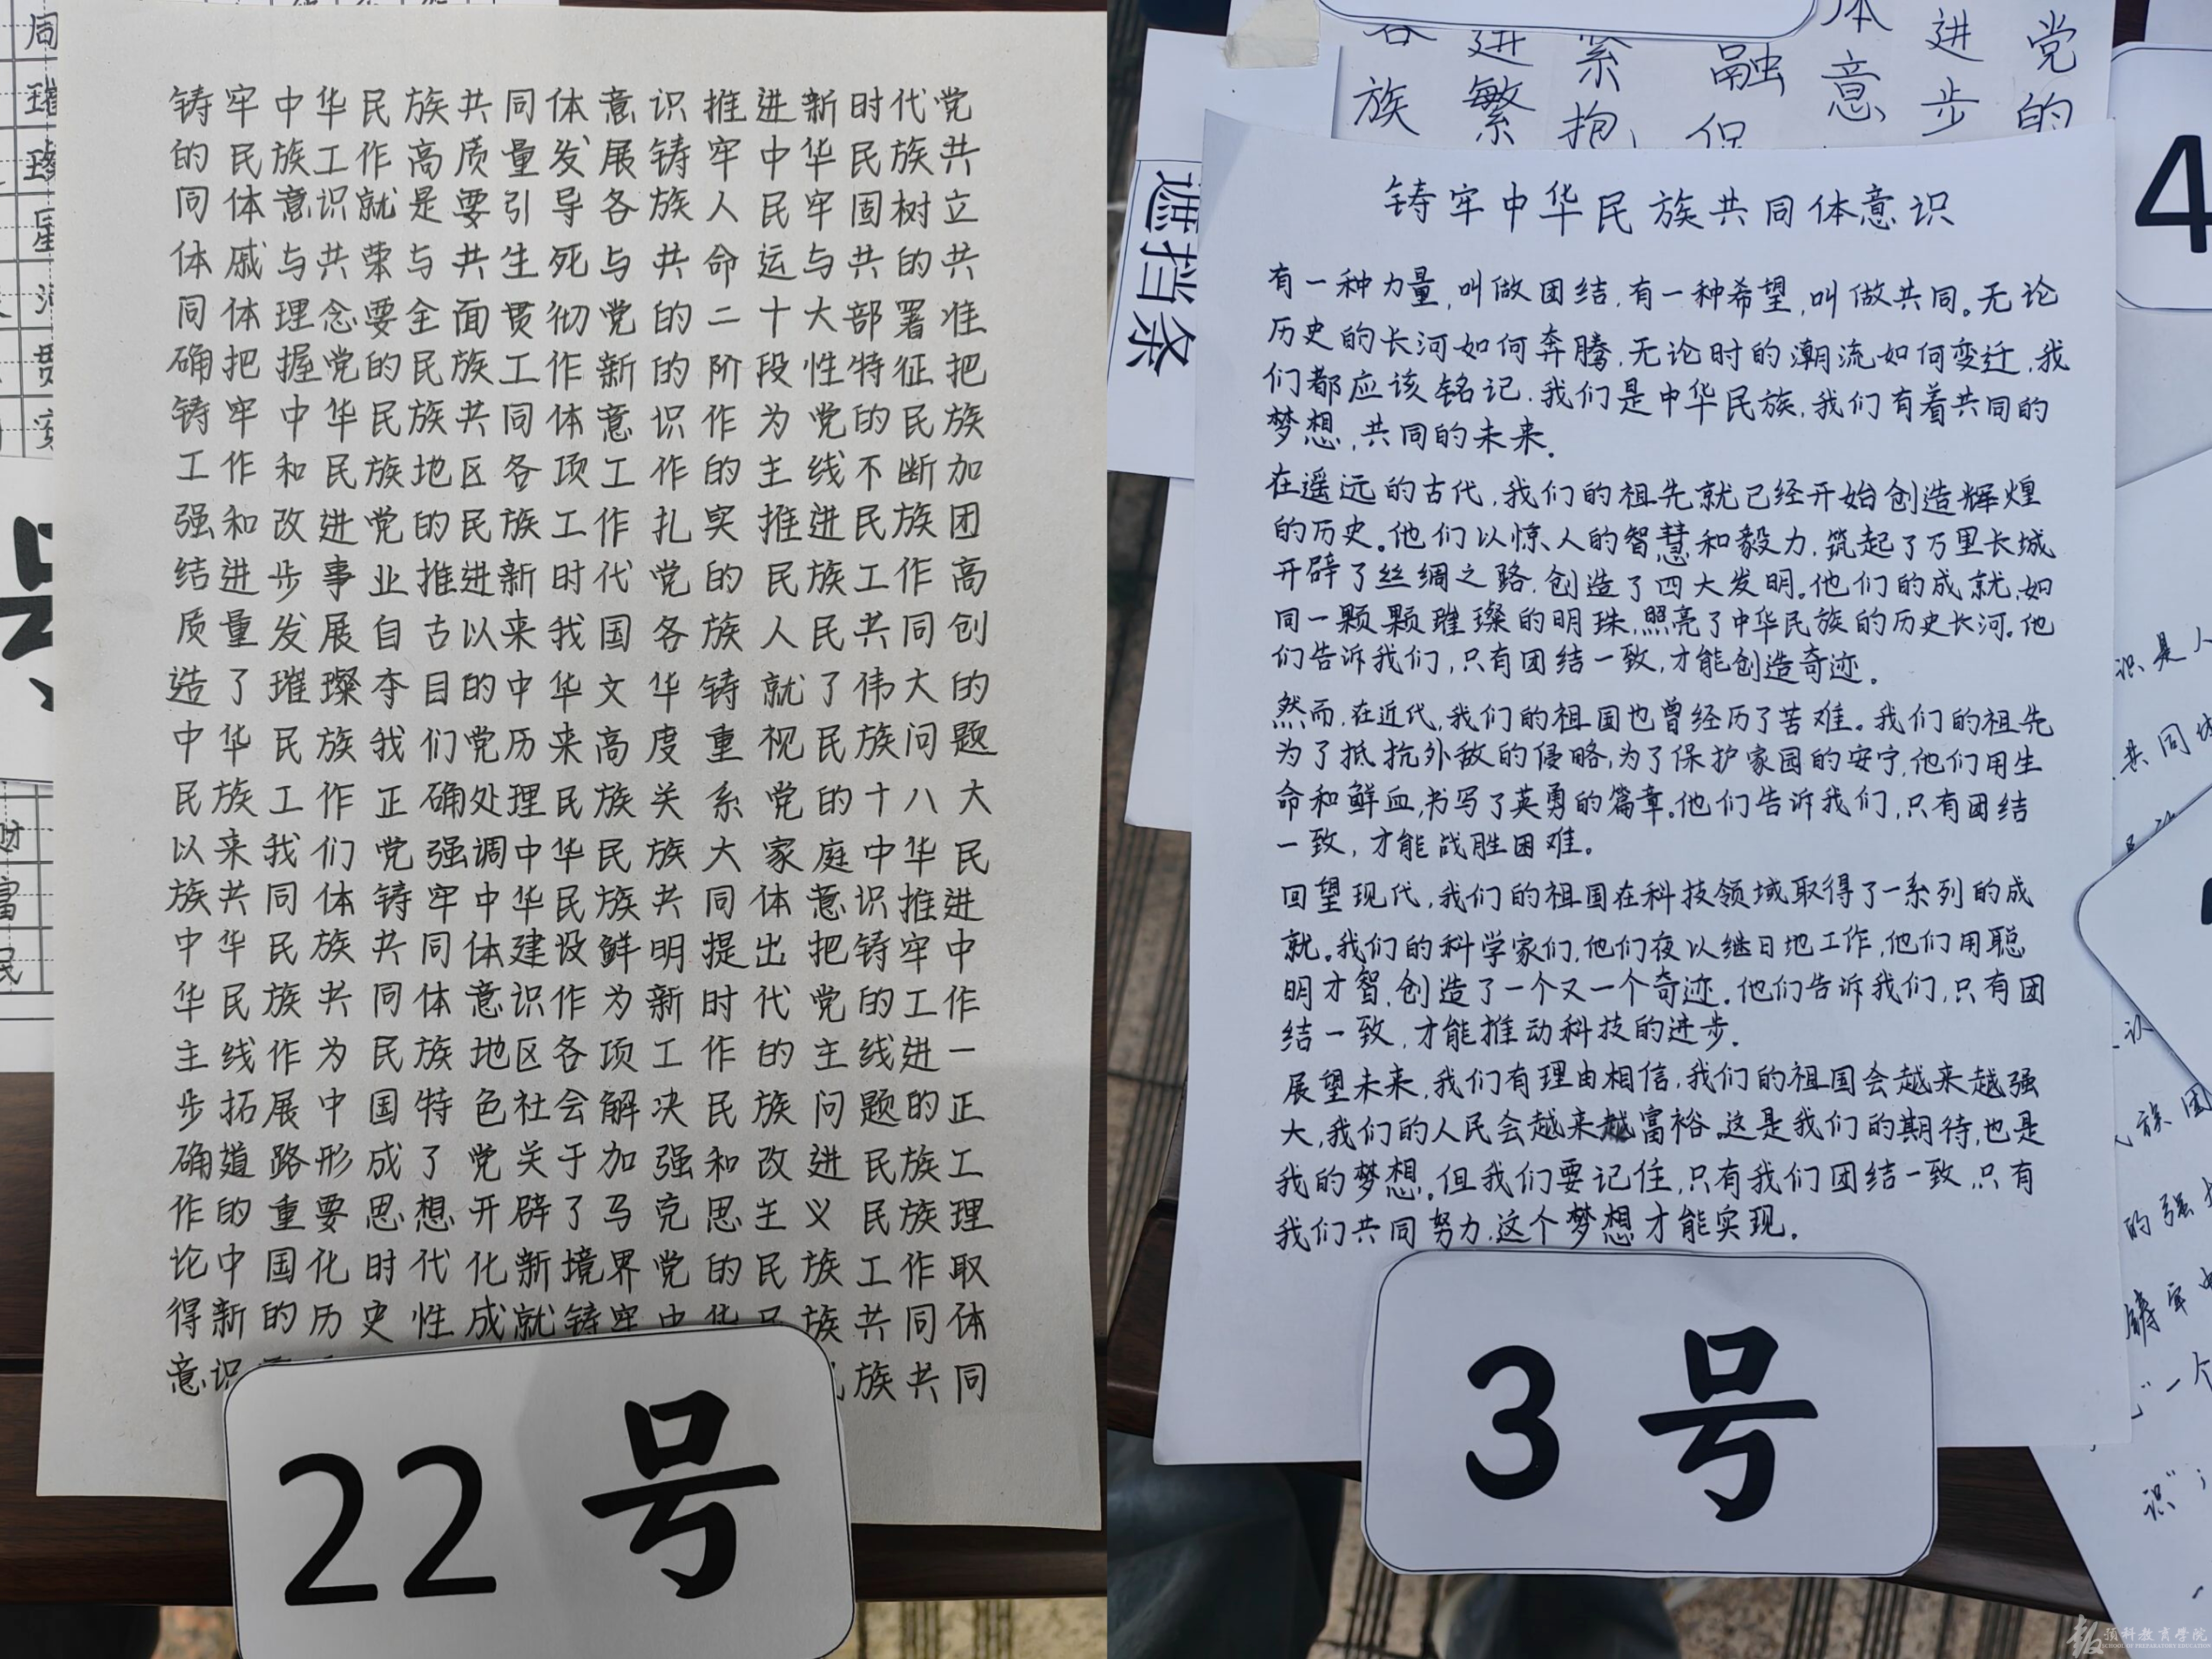 铸牢中华民族共同体意识推进新时代党
的民族工作高质量发展铸牢中华民族共
同体意识就是要引导各族人民牢固树立
体戚与共荣与共生死与共命运与共的共
同体理念要全面贯彻党的二十大部署准
确把握党的民族工作新的阶段性特征把
铸牢中华民族共同体意识作为党的民族
工作和民族地区各项工作的主线不断加
强和改进党的民族工作扎实推进民族团
结进步事业推进新时代党的民族工作高
质量发展自古以来我国各族人民共同创
造了璀璨夺目的中华文华铸就了伟大的
中华民族我们党历来高度重视民族问题
民族工作正确处理民族关系党的十八大
以来我们党强调中华民族大家庭中华民
族共同体铸牢中华民族共同体意识推进
中华民族共同体建设鲜明提出把铸牢中
华民族共同体意识作为新时代党的工作
主线作为民族地区各项工作的主线进一
步拓展中国特色社会解决民族问题的正
确道路形成了党关于加强和改进民族工
作的重要思想开辟了马克思主义民族理
论中国化时代化新境界党的民族工作取
得新的历史性成就铸牢中华民族共同体
意识
族共同
22号
铸牢中华民族共同体意识
有一种力量,叫做团结,有一种希望,叫做共同。无论
历史的长河如何奔腾,无论时的潮流如何变迁,我
们都应该铭记,我们是中华民族,我们有着共同的
梦想,共同的未来.
在遥远的古代,我们的祖先就已经开始创造辉煌
的历史。他们以惊人的智慧和毅力,筑起了万里长城
开辟了丝绸之路,创造了四大发明。他们的成就,如
同一颗颗璀璨的明珠,照亮了中华民族的历史长河。他
们告诉我们,只有团结一致,才能创造奇迹。
然而,在近代,我们的祖国也曾经历了苦难。我们的祖先
为了抵抗外敌的侵略,为了保护家园的安宁,他们用生
命和鲜血,书写了英勇的篇章。他们告诉我们,只有团结
一致,才能战胜困难。
回望现代,我们的祖国在科技领域取得了一系列的成
就。我们的科学家们,他们夜以继日地工作,他们用聪
明才智,创造了一个又一个奇迹。他们告诉我们,只有团
结一致,才能推动科技的进步.
展望未来,我们有理由相信,我们的祖国会越来越强
大,我们的人民会越来越富裕。这是我们的期待,也是
我的梦想。但我们要记住,只有我们团结一致,只有
我们共同努力,这个梦想才能实现。
3号
遮挡条
族
繁
抱
融
意
进
步
党
的
4
预科教育学院
SCHOOL OF PREPARATORY EDUCATION